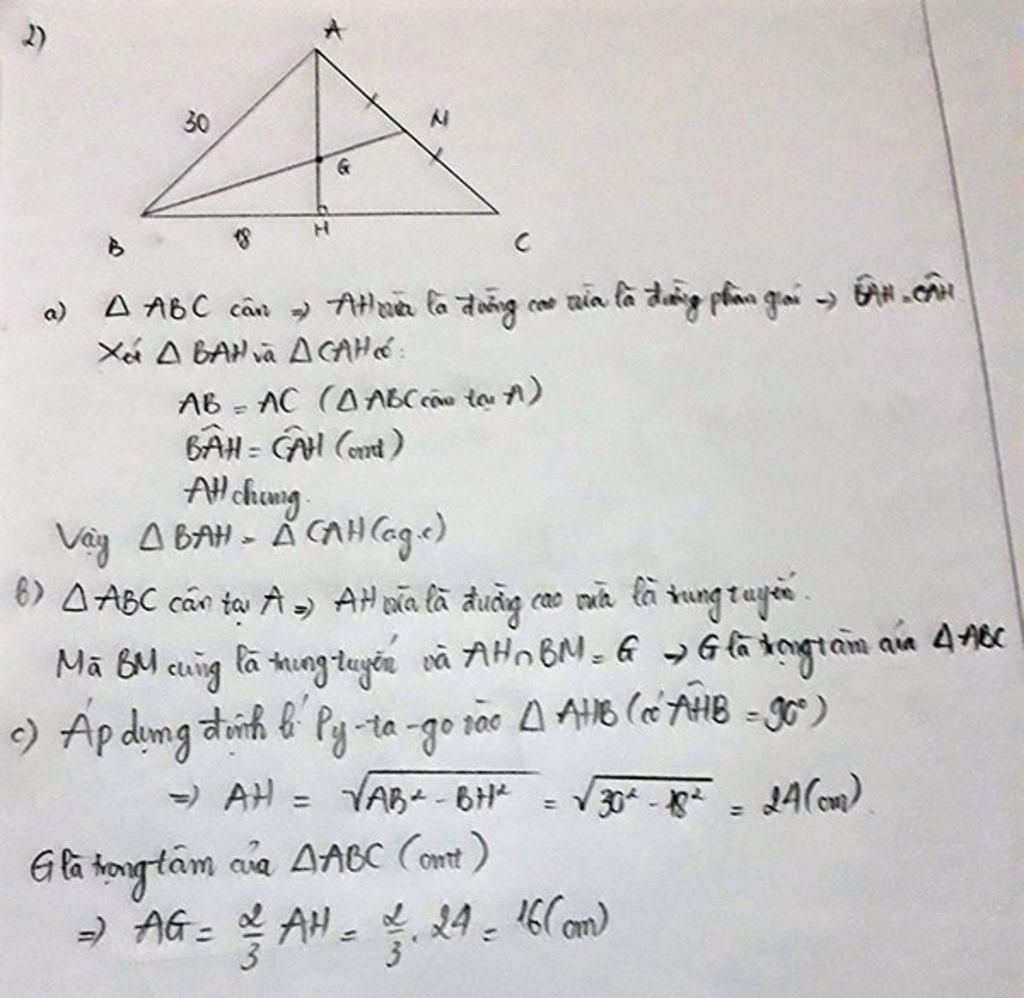 2)
A
30
M
G
B
18
H
C
a) Δ ABC cân => AH vừa là đường cao vừa là đường phân giác -> BÂH = CÂH
Xét Δ BAH và Δ CAH có:
AB = AC (Δ ABC cân tại A)
BÂH = CÂH (cmt)
AH chung.
Vậy Δ BAH = Δ CAH (c.g.c)
b) Δ ABC cân tại A => AH vừa là đường cao vừa là trung tuyến.
Mà BM cũng là trung tuyến và AH ∩ BM = G -> G là trọng tâm của Δ ABC
c) Áp dụng định lí Py-ta-go vào Δ AHB (có AĤB = 90°)
=> AH = √AB² - BH² = √30² - 18² = 24 (cm).
G là trọng tâm của Δ ABC (cmt)
=> AG = 2/3 AH = 2/3 . 24 = 16 (cm)